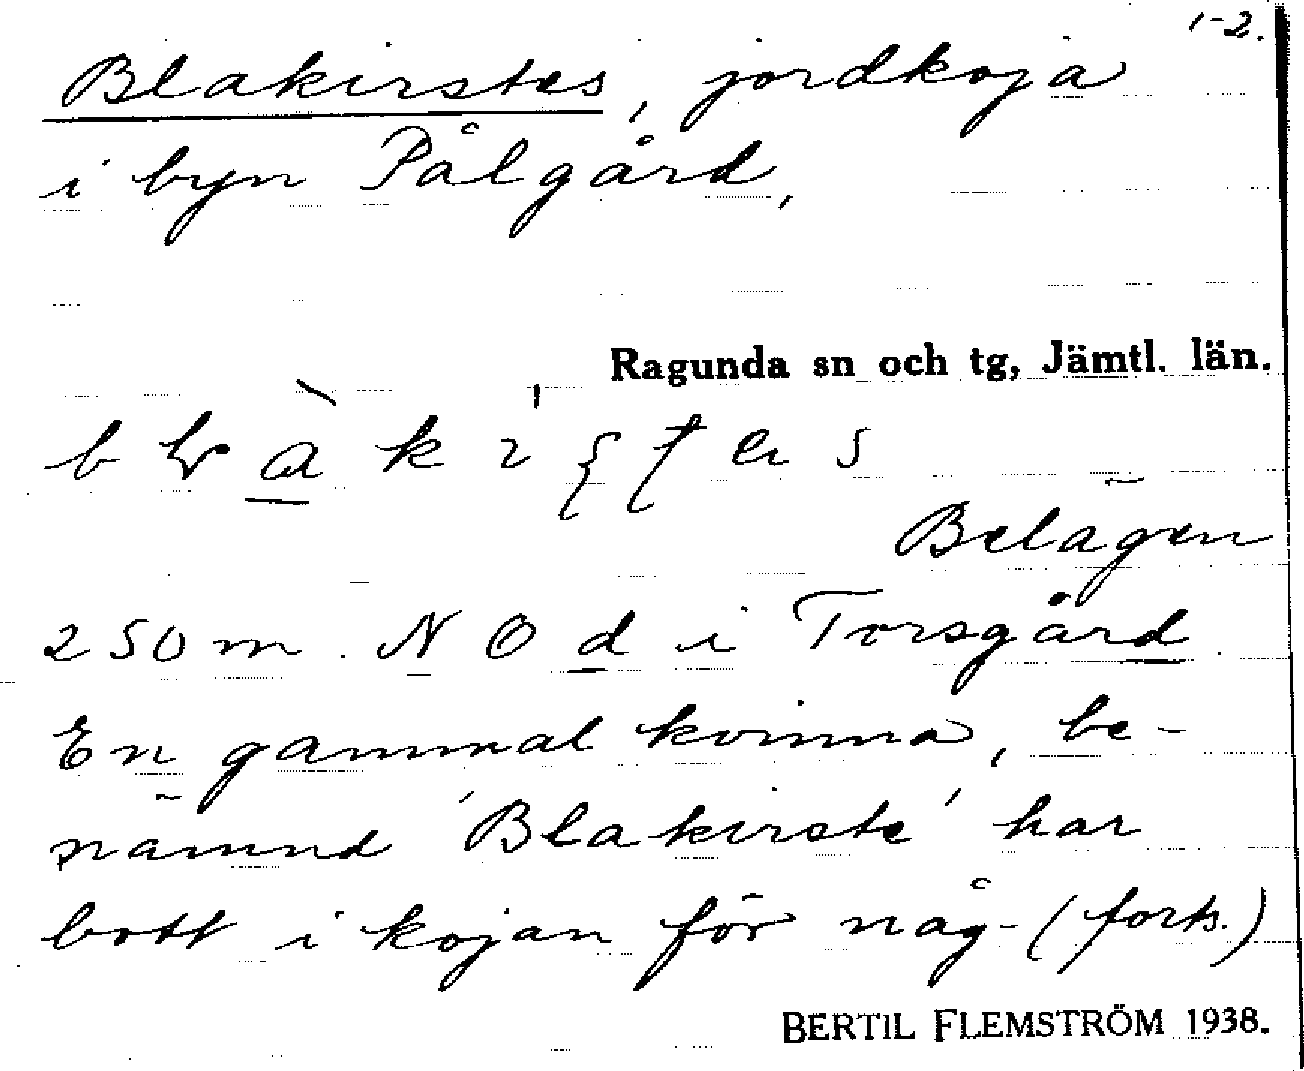 1-2.
Blakirstes, jordkoja
i byn Pålgård,
Ragunda sn och tg, Jämtl. län.
Belägen
250 m. NO d i Torsgård
En gammal kvinna, be-
nämnd 'Blakirste' har
bott i kojan för någ- (forts.)
BERTIL FLEMSTRÖM 1938.